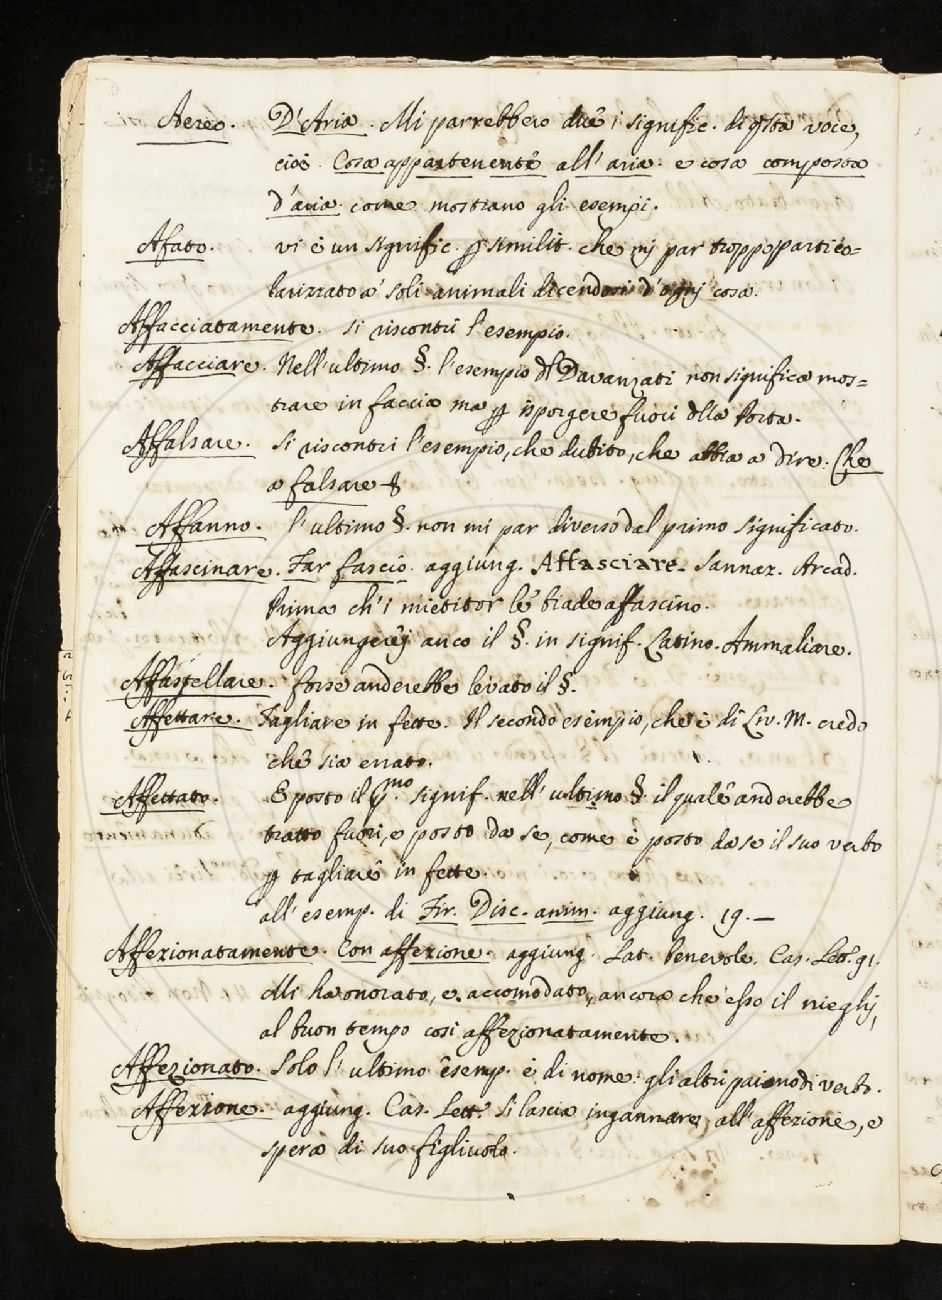 Aereo. D'Aria. Mi parrebbero due i signific. di q.sta voce,
cioè. Cosa appartenente all'aria: e cosa composta
d'aria. come mostrano gli esempi.
Afato. vi è un signific. ꝑ similit. che mi par troppo partico=
larizzato a' soli animali dicendosi d'ogni cosa.
Affacciatamente. si riscontri l'esempio.
Affacciare. Nell'ultimo §. l'esempio dl Davanzati non significa mos=
trare in faccia ma ꝑ isporgere fuori dlla Porta.
Affalsare. Si riscontri l'esempio, che dubito, che abbia a dire: Che
a falsare
Affanno. l'ultimo §. non mi par diverso dal primo significato.
Affascinare. Far fascio. aggiung. Affasciare. Sannaz. Arcad.
Prima ch'i mietitor le biade affascino.
Aggiungerej anco il §. in signif. Latino. Ammaliare.
Affastellare. forse anderebbe levato il §.
Affettare. Tagliare in fette. Il secondo esempio, che è di Liv. M. credo
che sia errato.
Affettato. E posto il p.mo signif. nell'ultimo §. il quale anderebbe
tratto fuori, e posto da se, come è posto da se il suo verbo
ꝑ tagliare in fette.
all'esemp. di Fir. Disc. anim. aggiung. 19.—
Affezionatamente. Con affezione. aggiung. Lat. benevole. Cas. Lett. 91.
Mi ha onorato, e accomodato, ancora che esso il nieghj,
al buon tempo così affezionatamente.
Affezionato. Solo l'ultimo esemp. è di nome: gli altri paiono di verbo.
Affezione. aggiung. Cas. Lett. Si lascia ingannare all'affezione, e
spera di suo figliuolo.